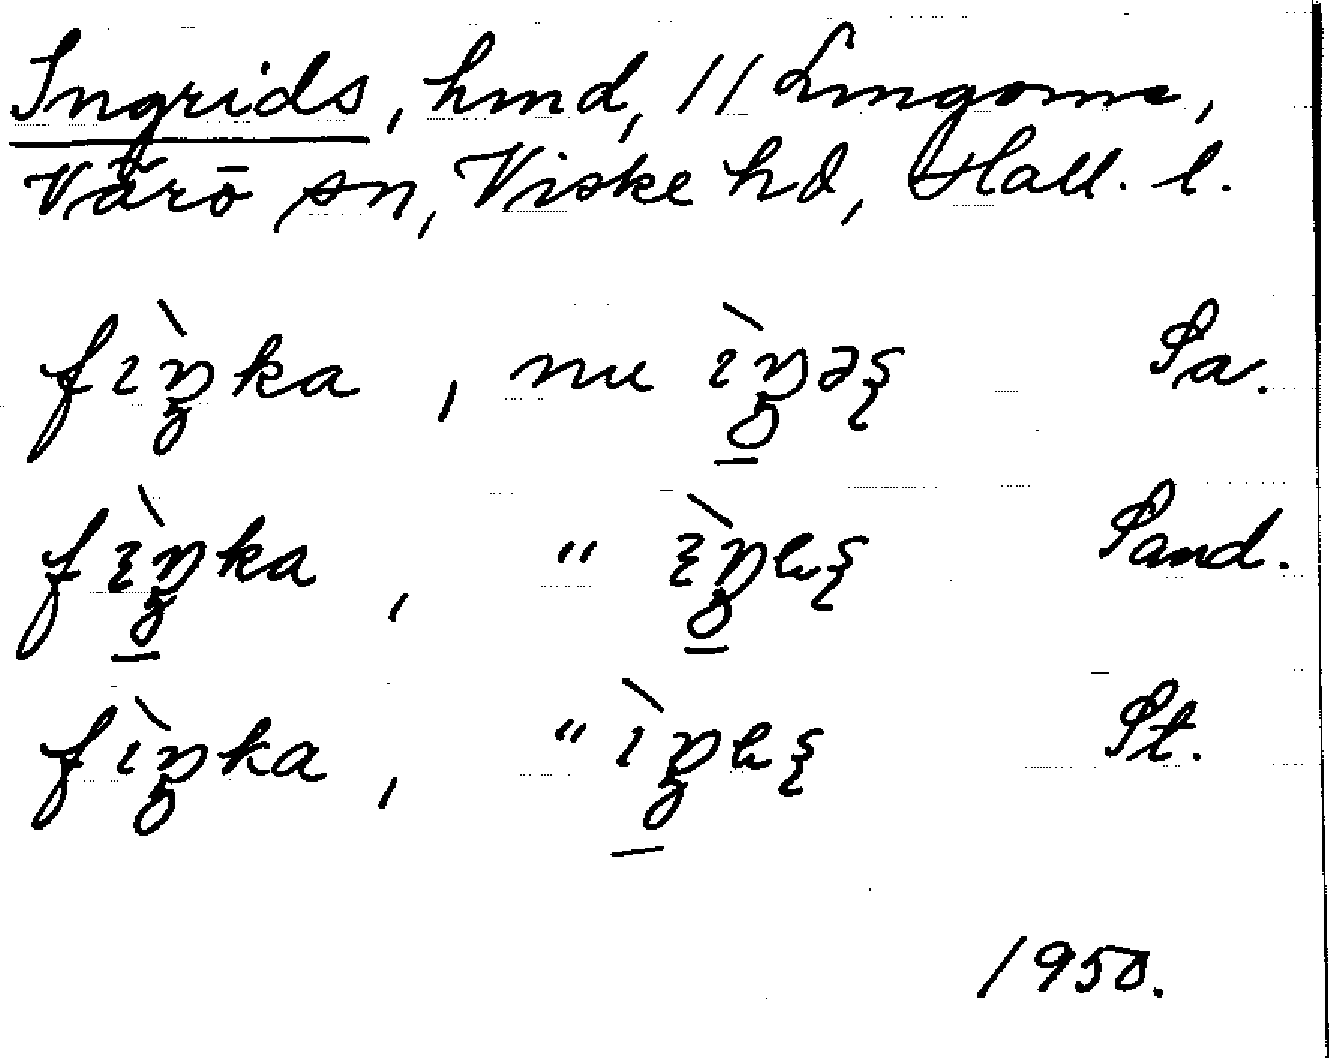 Ingrids, hmd, 11 Lingome,
Värö sn, Viske hd, Hall. l.
fìŋka, nu ìŋəs Pa.
fìŋka, " ìŋəs Pand.
fìŋka, " ìŋəs Pt.
1950.